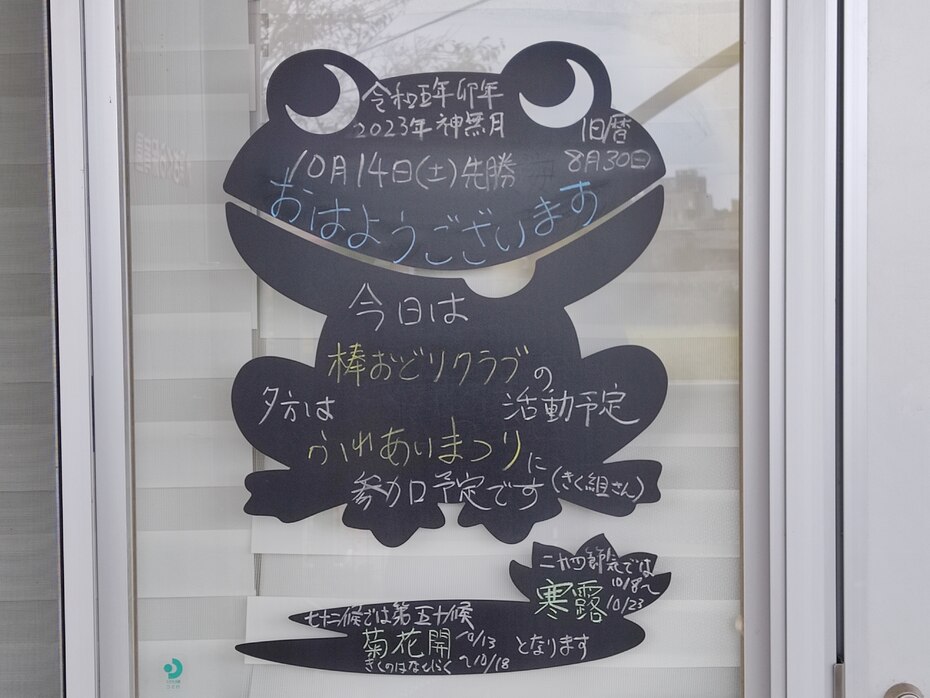 令和五年卯年
2023年神無月
旧暦
8月30日
10月14日(土)先勝
おはようございます
今日は
棒おどりクラブの
活動予定
夕方は
ふれあいまつりに
参加予定です(きく組さん)
二十四節気では
寒露
10/8〜
10/23
七十二候では第五十候
菊花開
10/13
〜10/18
となります
きくのはなひらく